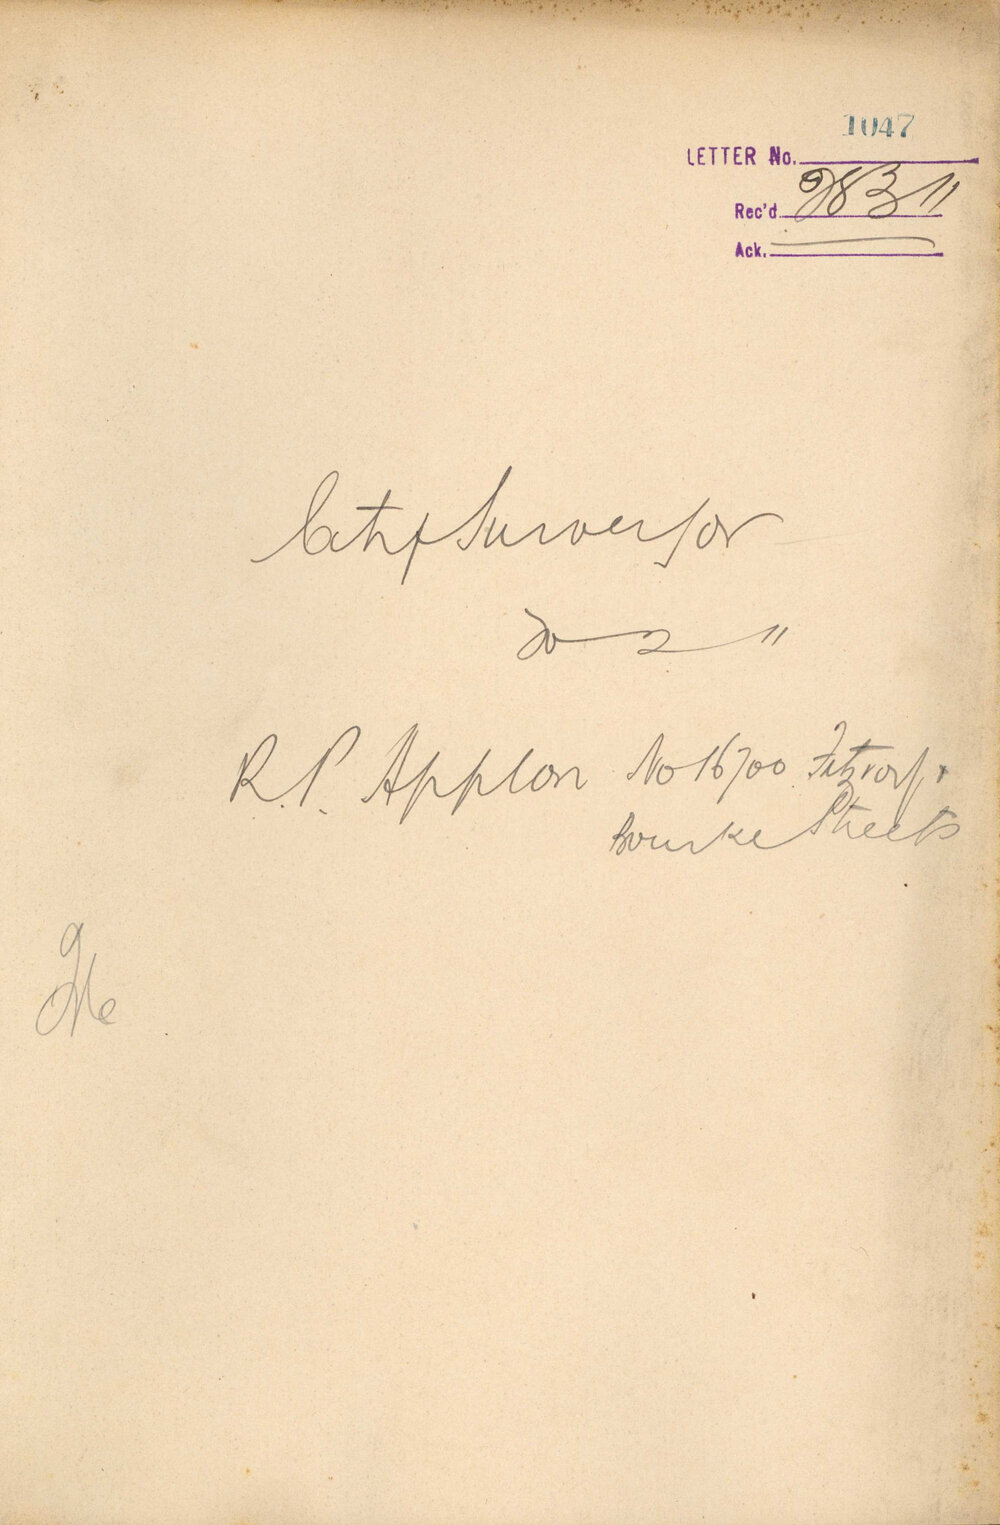 1047
LETTER No.
Rec'd 28 3 11
Ack.
City Surveyor
20 2 11
R. P. Applon No 16700 Fitzroy &
Bourke Streets
File